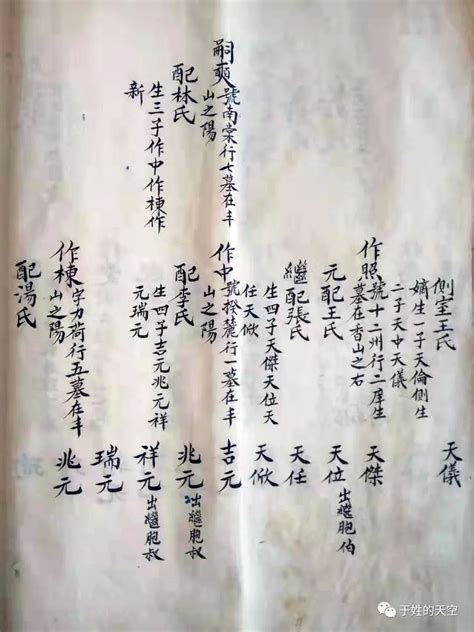 嗣爽
號南棠行七墓在丰
山之陽
配林氏
生三子作中作棟作
新
側室王氏
嫡生一子天倫側生
二子天中天儀
作照
號十二州行二庠生
墓在香山之右
元配王氏
繼配張氏
生四子天傑天位天
任天
作中
號揆麓行一墓在丰
山之陽
配李氏
生四子吉元兆元祥
元瑞元
作棟
字力荷行五墓在丰
山之陽
配湯氏
天儀
天傑
天位出繼胞伯
天任
天
吉元
兆元出繼胞叔
祥元出繼胞叔
瑞元
兆元
于姓的天空